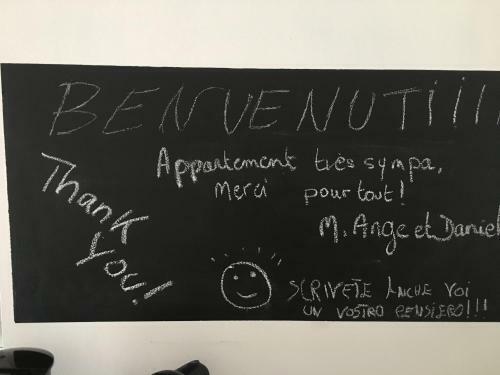 BENVENUTiiii
Appartement très sympa,
Merci pour tout!
M. Ange et Daniel
Thank
You!
SCRIVETE ANCHE VOI
UN VOSTRO PENSIERO!!!